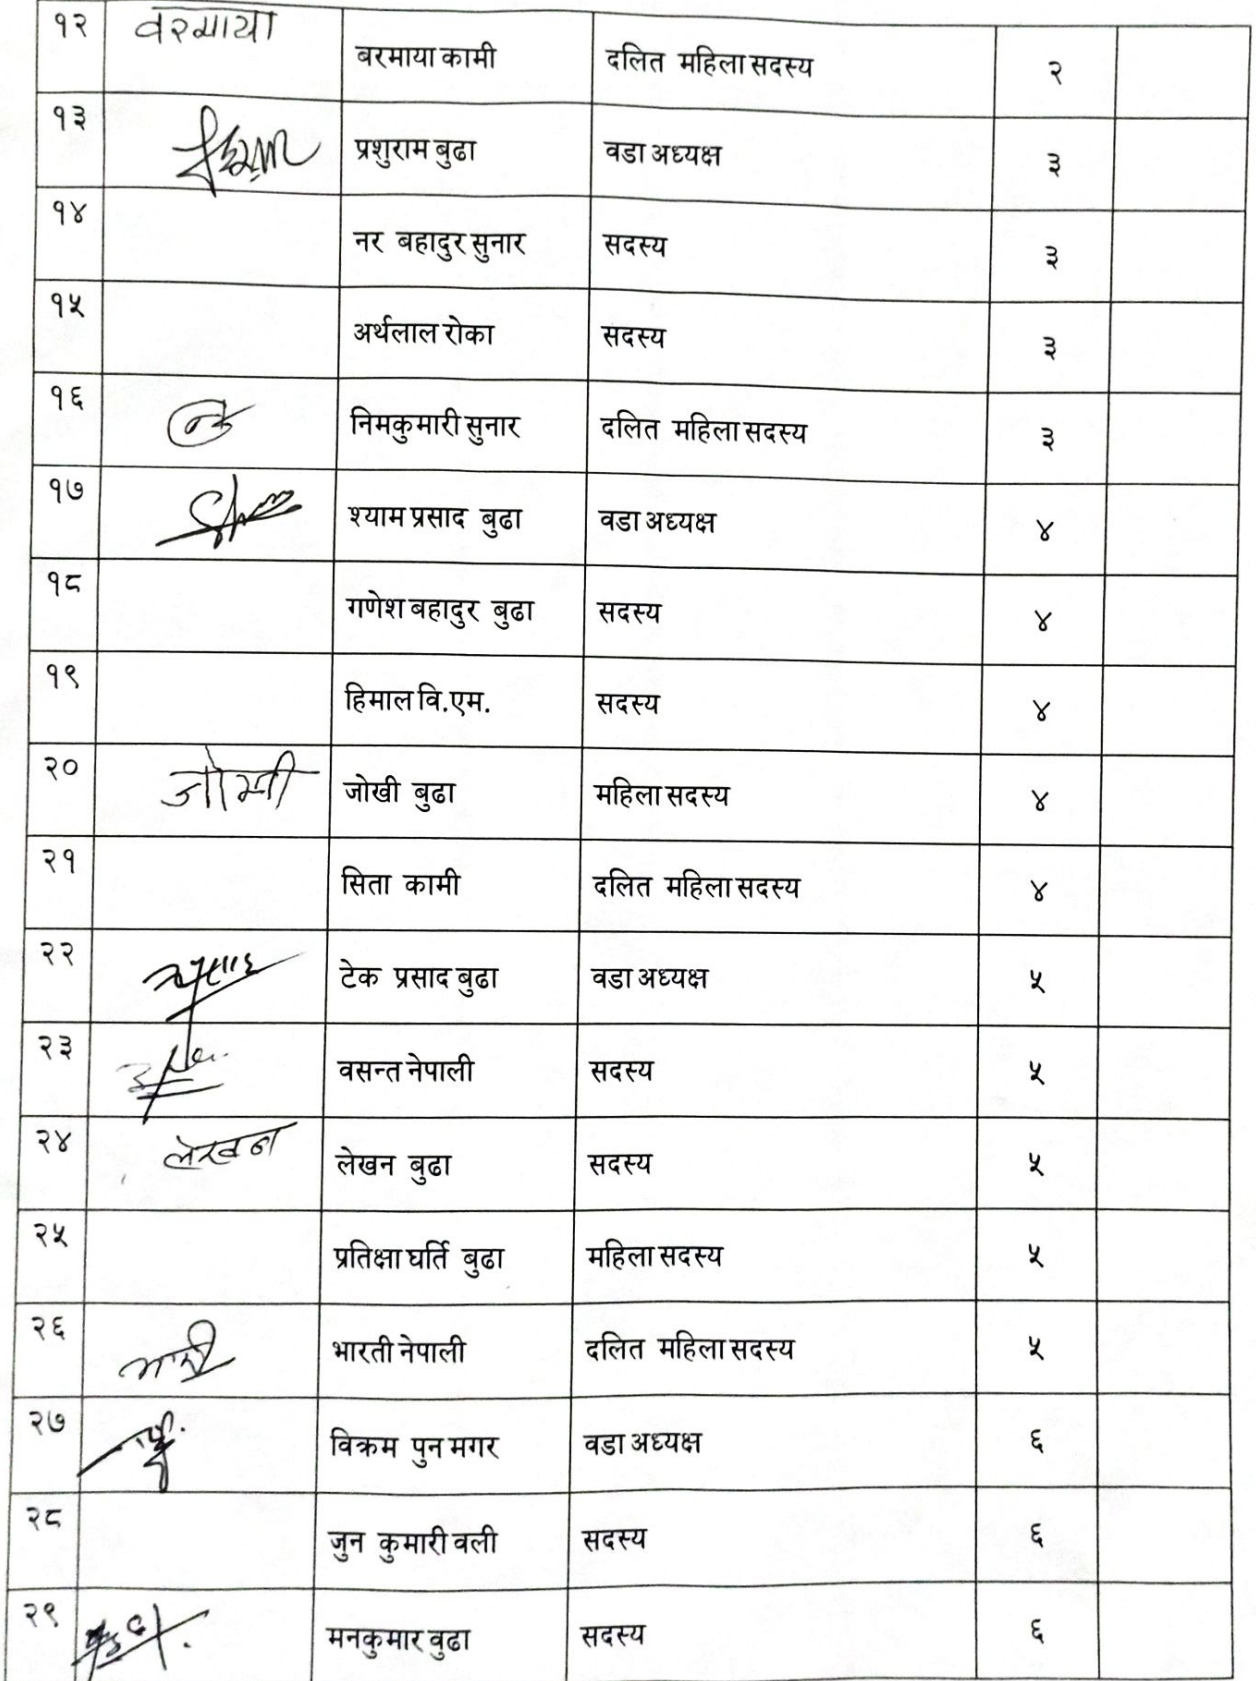 १२ वरमाया बरमाया कामी दलित महिला सदस्य २
१३ प्रशुराम बुढा वडा अध्यक्ष ३
१४ नर बहादुर सुनार सदस्य ३
१५ अर्थलाल रोका सदस्य ३
१६ निमकुमारी सुनार दलित महिला सदस्य ३
१७ श्याम प्रसाद बुढा वडा अध्यक्ष ४
१८ गणेश बहादुर बुढा सदस्य ४
१९ हिमाल वि.एम. सदस्य ४
२० जोखी बुढा महिला सदस्य ४
२१ सिता कामी दलित महिला सदस्य ४
२२ टेक प्रसाद बुढा वडा अध्यक्ष ५
२३ वसन्त नेपाली सदस्य ५
२४ लेखन लेखन बुढा सदस्य ५
२५ प्रतिक्षा घर्ति बुढा महिला सदस्य ५
२६ भारती नेपाली दलित महिला सदस्य ५
२७ विक्रम पुन मगर वडा अध्यक्ष ६
२८ जुन कुमारी वली सदस्य ६
२९ मनकुमार वुढा सदस्य ६